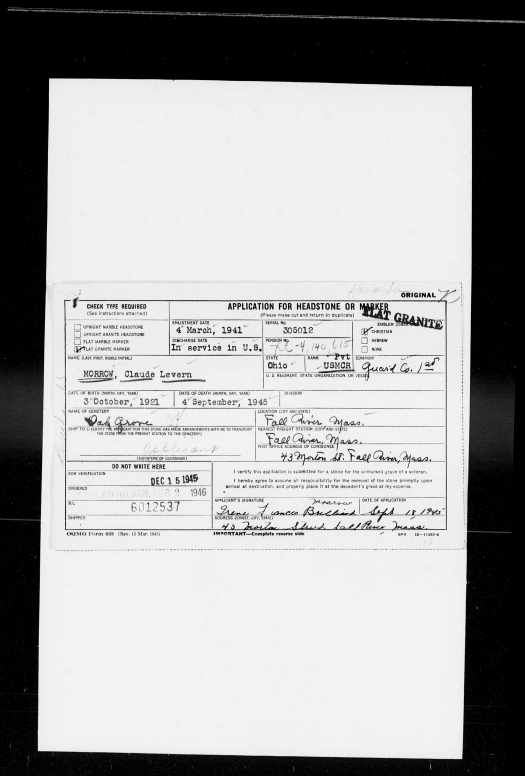 ORIGINAL
CHECK TYPE REQUIRED
(See instructions attached)
UPRIGHT MARBLE HEADSTONE
UPRIGHT GRANITE HEADSTONE
FLAT MARBLE MARKER
FLAT GRANITE MARKER
APPLICATION FOR HEADSTONE OR MARKER
(Please make out and return in duplicate)
FLAT GRANITE
ENLISTMENT DATE
4 March, 1941
SERIAL No.
305012
EMBLEM
CHRISTIAN
HEBREW
NONE
DISCHARGE DATE
In service in U.S.
PENSION No.
NAME (LAST, FIRST, MIDDLE INITIAL)
MORROW, Claude Levern
STATE
Ohio
RANK
Pvt
USMCR
COMPANY
Guard Co. 1st
U. S. REGIMENT, STATE ORGANIZATION, OR VESSEL
DATE OF BIRTH (MONTH, DAY, YEAR)
3 October, 1921
DATE OF DEATH (MONTH, DAY, YEAR)
4 September, 1945
DIVISION
NAME OF CEMETERY
Oak Grove
LOCATION (CITY AND STATE)
Fall River Mass.
SHIP TO (I CERTIFY THE APPLICANT FOR THIS STONE HAS MADE ARRANGEMENTS WITH ME TO TRANSPORT THE STONE FROM THE FREIGHT STATION TO THE CEMETERY)
NEAREST FREIGHT STATION (CITY AND STATE)
Fall River, Mass.
POST OFFICE ADDRESS OF CONSIGNEE
43 Morton St. Fall River, Mass.
(SIGNATURE OF CONSIGNEE)
DO NOT WRITE HERE
FOR VERIFICATION
DEC 15 1945
ORDERED
1946
B/L
6012537
SHIPPED
I certify this application is submitted for a stone for the unmarked grave of a veteran.
I hereby agree to assume all responsibility for the removal of the stone promptly upon
arrival at destination, and properly place it at the decedent's grave at my expense.
APPLICANT'S SIGNATURE
Morrow
DATE OF APPLICATION
Irene Frances
Sept 18 1945
ADDRESS (STREET, CITY, STATE)
43 Morton Street Fall River Mass.
OQMG Form 623
IMPORTANT—Complete reverse side
GPO